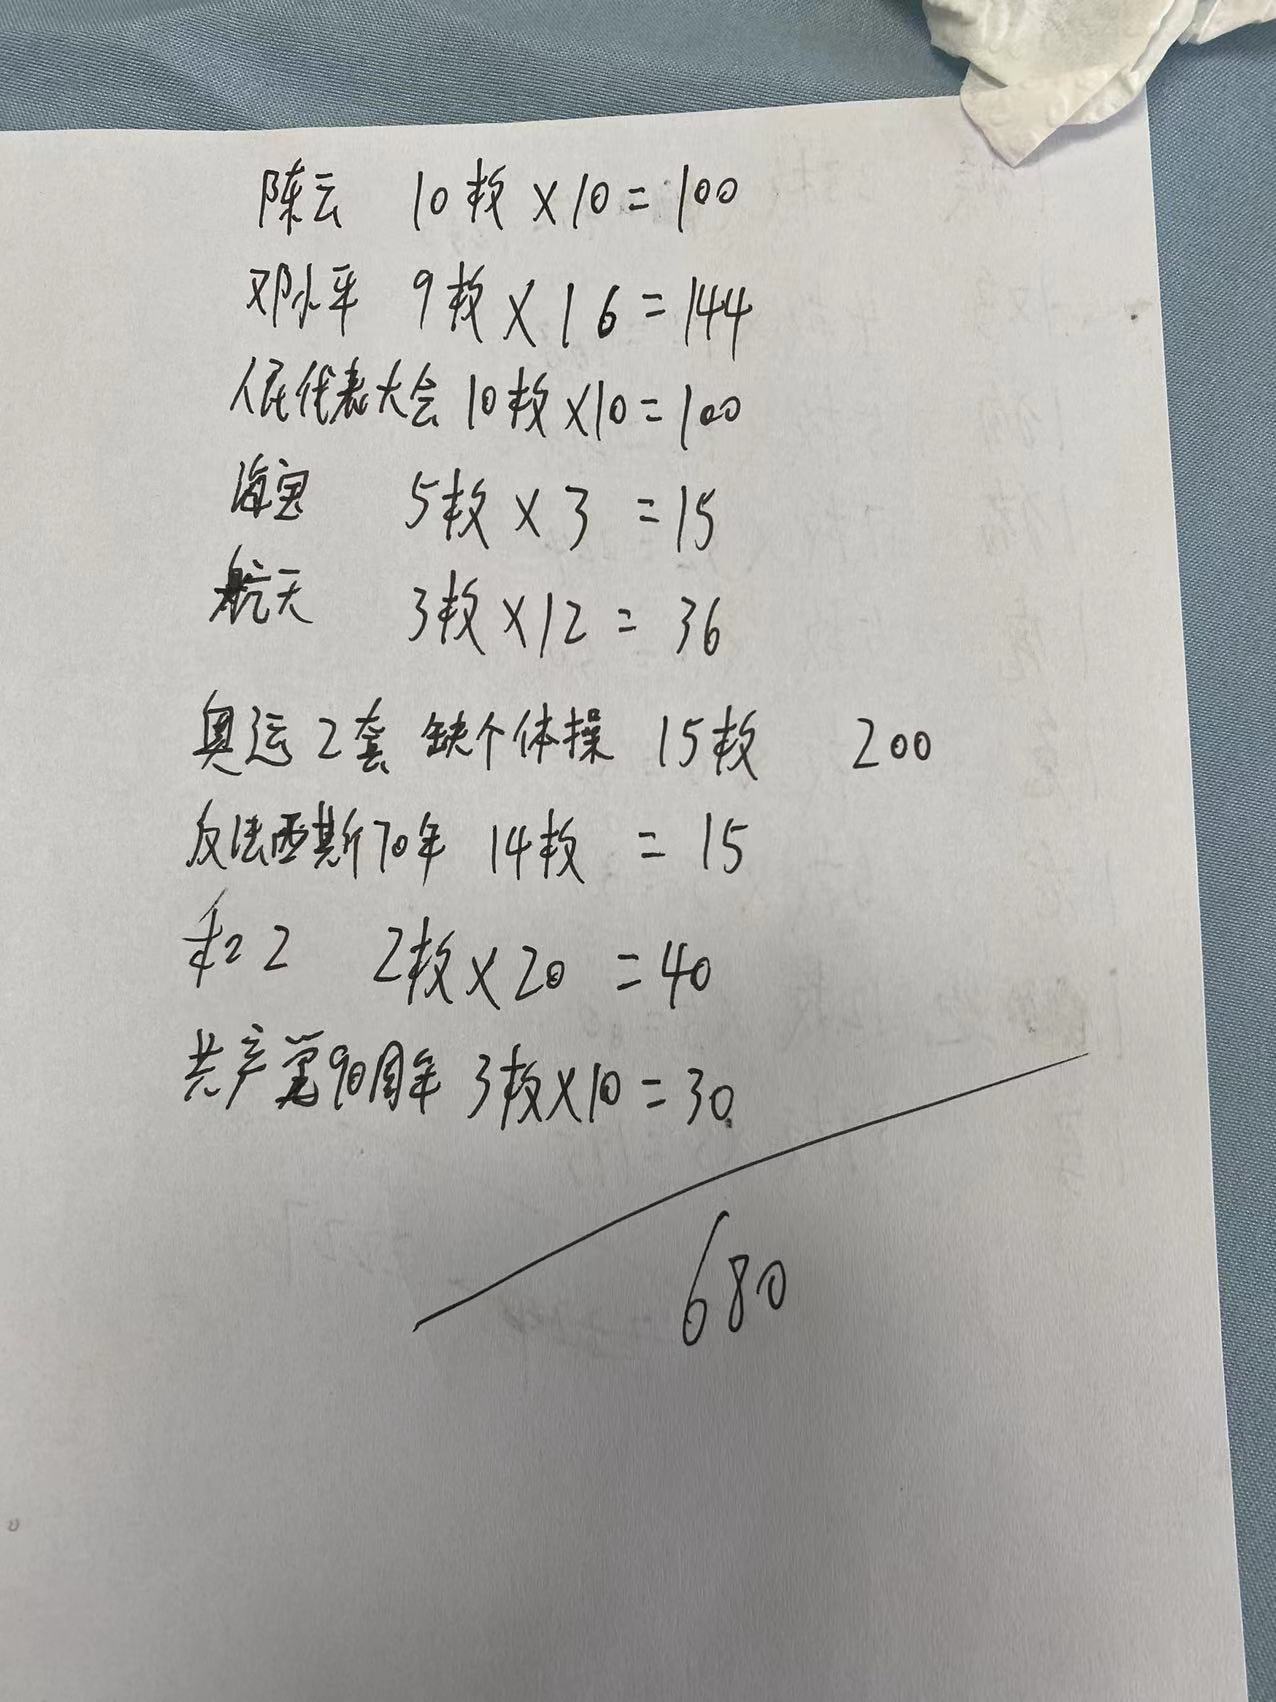 陈云 10枚×10=100
邓小平 9枚×16=144
人民代表大会10枚×10=100
海宝 5枚×3=15
航天 3枚×12=36
奥运2套 缺个体操 15枚 200
反法西斯70年 14枚=15
和2 2枚×20=40
共产党90周年 3枚×10=30
680